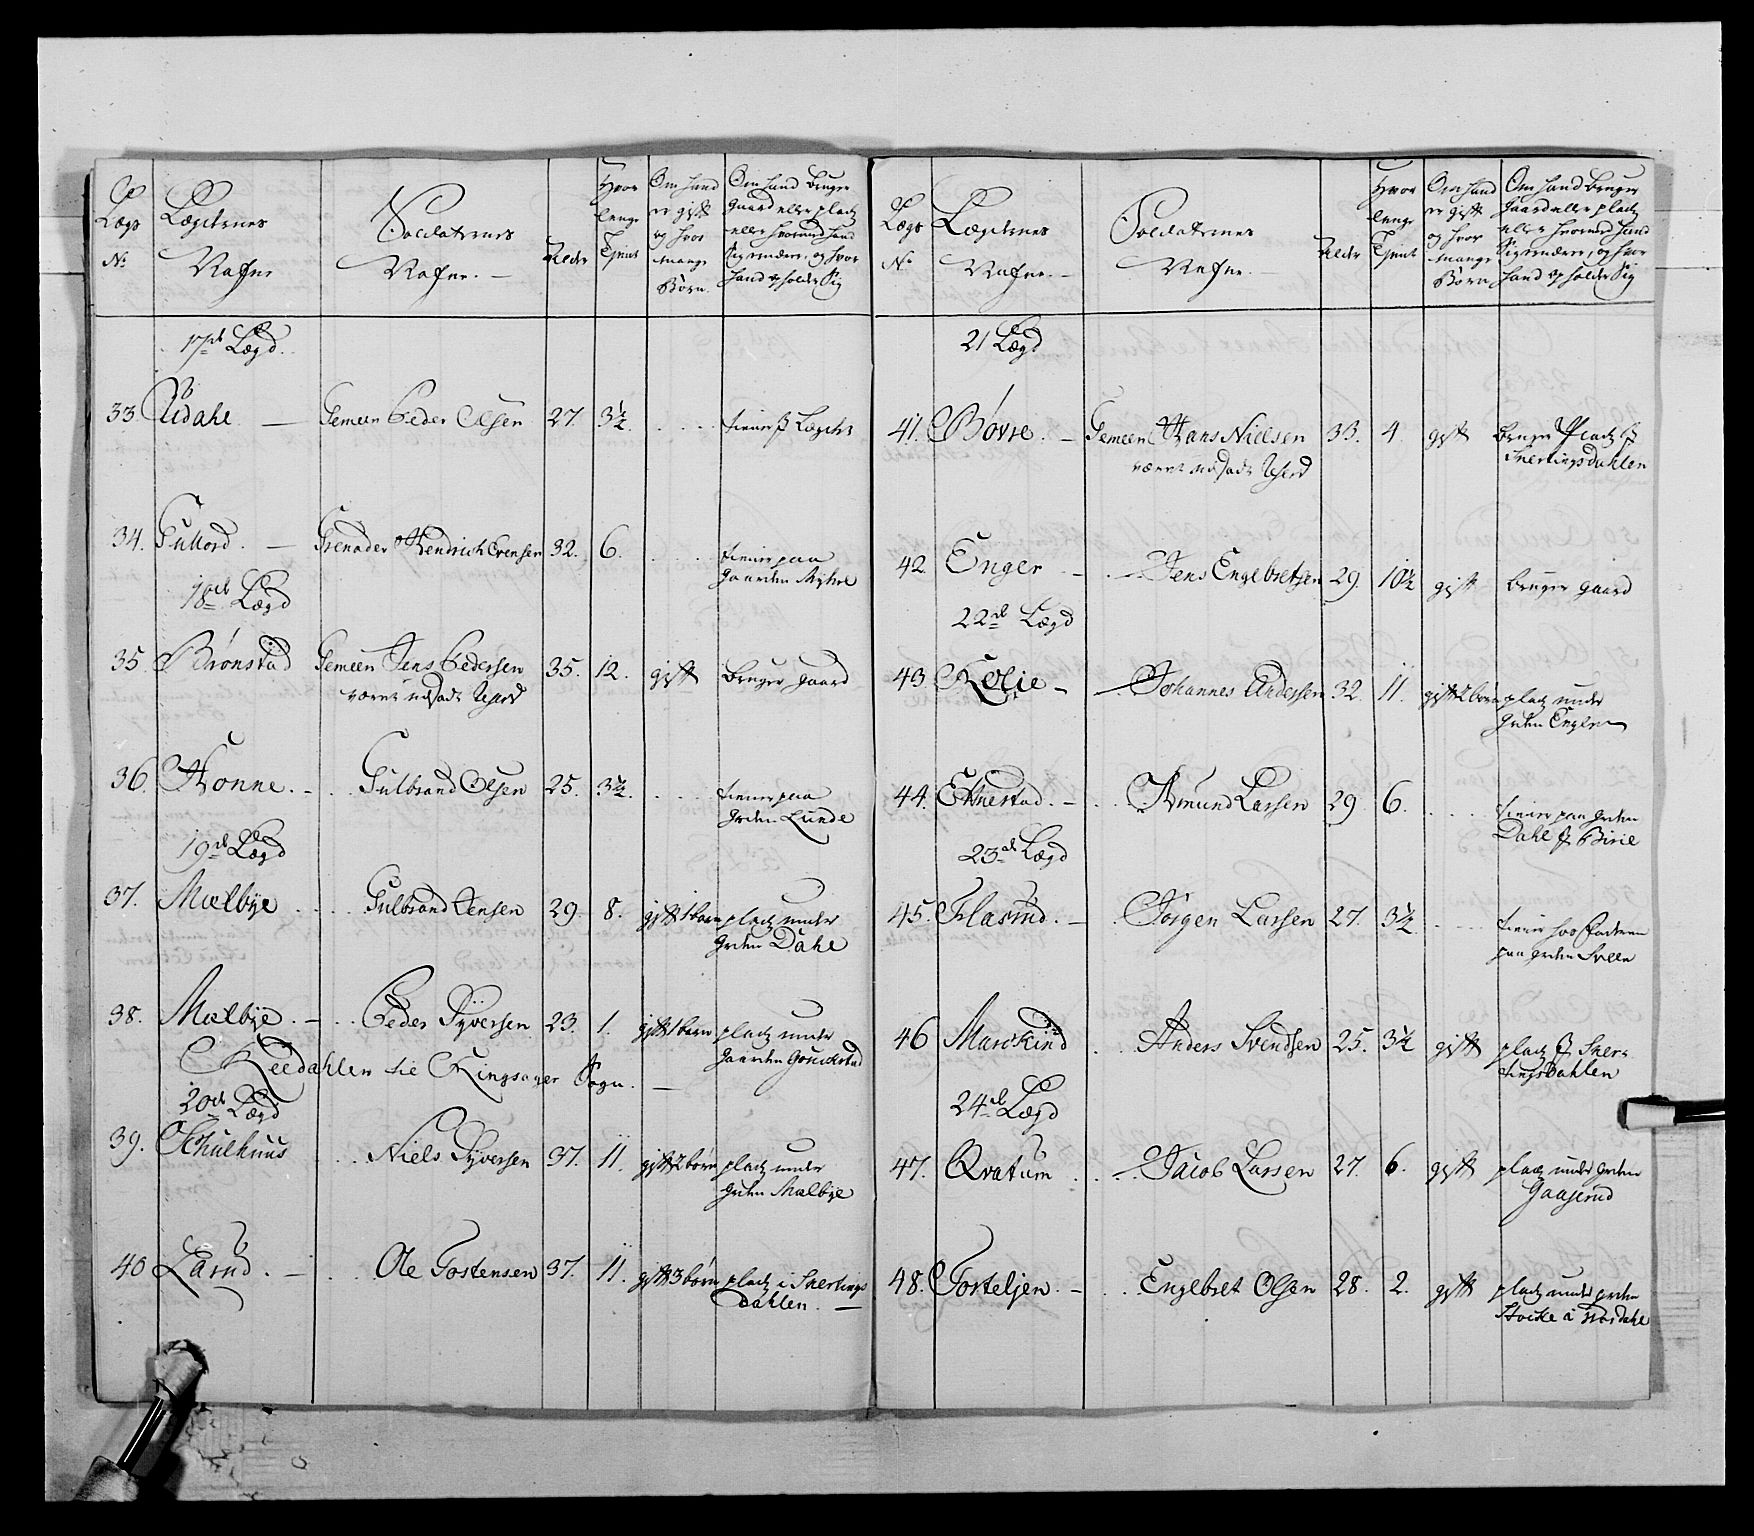 Lægs
No
Lægdernes
Nafne
Soldaternes
Nafne. –
Alder
Hvor
lenge
Tjent
Om hand
er gift
og hvor
mange
Børn.
Om hand bruger
gaard eller platz
eller hvormed hand
Sig ernærer, og hvor
hand opholder Sig
17de Lægd.
33. Udahl — Gemeen Peder Olsen 27. 3½ . . . . tiener Lægder
34. Gullord. — Grenader Hendrich Evensen 32. 6. . . . . tiener paa
Gaarden Myhre
18de Lægd
35. Brønstad Gemeen Jens Pedersen 35. 12. gift bruger gaard
36. Honne. – . . Gulbrand Olsen 25. 3½. . . . . tiener paa
Grden Lunde
19de Lægd
37. Mælbye . . . . Gulbrand Jensen 29. 8. gift 1 barn platz under
Grden Dahl
38. Mælbye. – . . Peder Syversen 23. 1. gift 1 barn platz under
Gaarden
Reedahlen til Ringsager Sogn. —
20de Lægd
39. Schulhuus . . . Niels Syversen 37. 11. gift 2 børn platz under
Grden Mælbye
40 Larud. – . . . Ole Tostensen 37. 11. gift 3 børn platz i Snertings
dahlen. —
Lægs
No
Lægdernes
Nafne. –
Soldaternes
Nafne.
Alder
Hvor
lenge
Tjent
Om hand
er gift
og hvor
mange
Børn
Om hand bruger
gaard eller platz
eller hvormed hand
Sig ernærer, og hvor
hand opholder Sig
21 Lægd
41. Bøvre. – Gemeen Hans Nielsen 33. 4. gift bruger Platz i
Snertingsdahlen
42. Enger – . . — Jens Engebretsen 29. 10½ gift bruger gaard
22de Lægd
43. Kolie – — Johannes Andersen 32. 11. gift 2 børn platz under
Grden Engeln
44. Eknestad. – . . Amund Larsen 29 6. . . . . tiener paa Grden
Dahl i Birie
23de Lægd
45. Flasrud. – . . Jørgen Larsen 27. 3½ . . . . tiener hos Faderen
paa Grden
46 Marckind . . . Anders Svendsen 25. 3½ gift platz i Sner-
tingsdahlen
24de Lægd
47. Qvatum . . . — Jacob Larsen 27. 6. gift platz under Grden
Gaaserud
48. Torteljen. – . . . Engebret Olsen 28. 2. gift platz under Grden
Stocke i